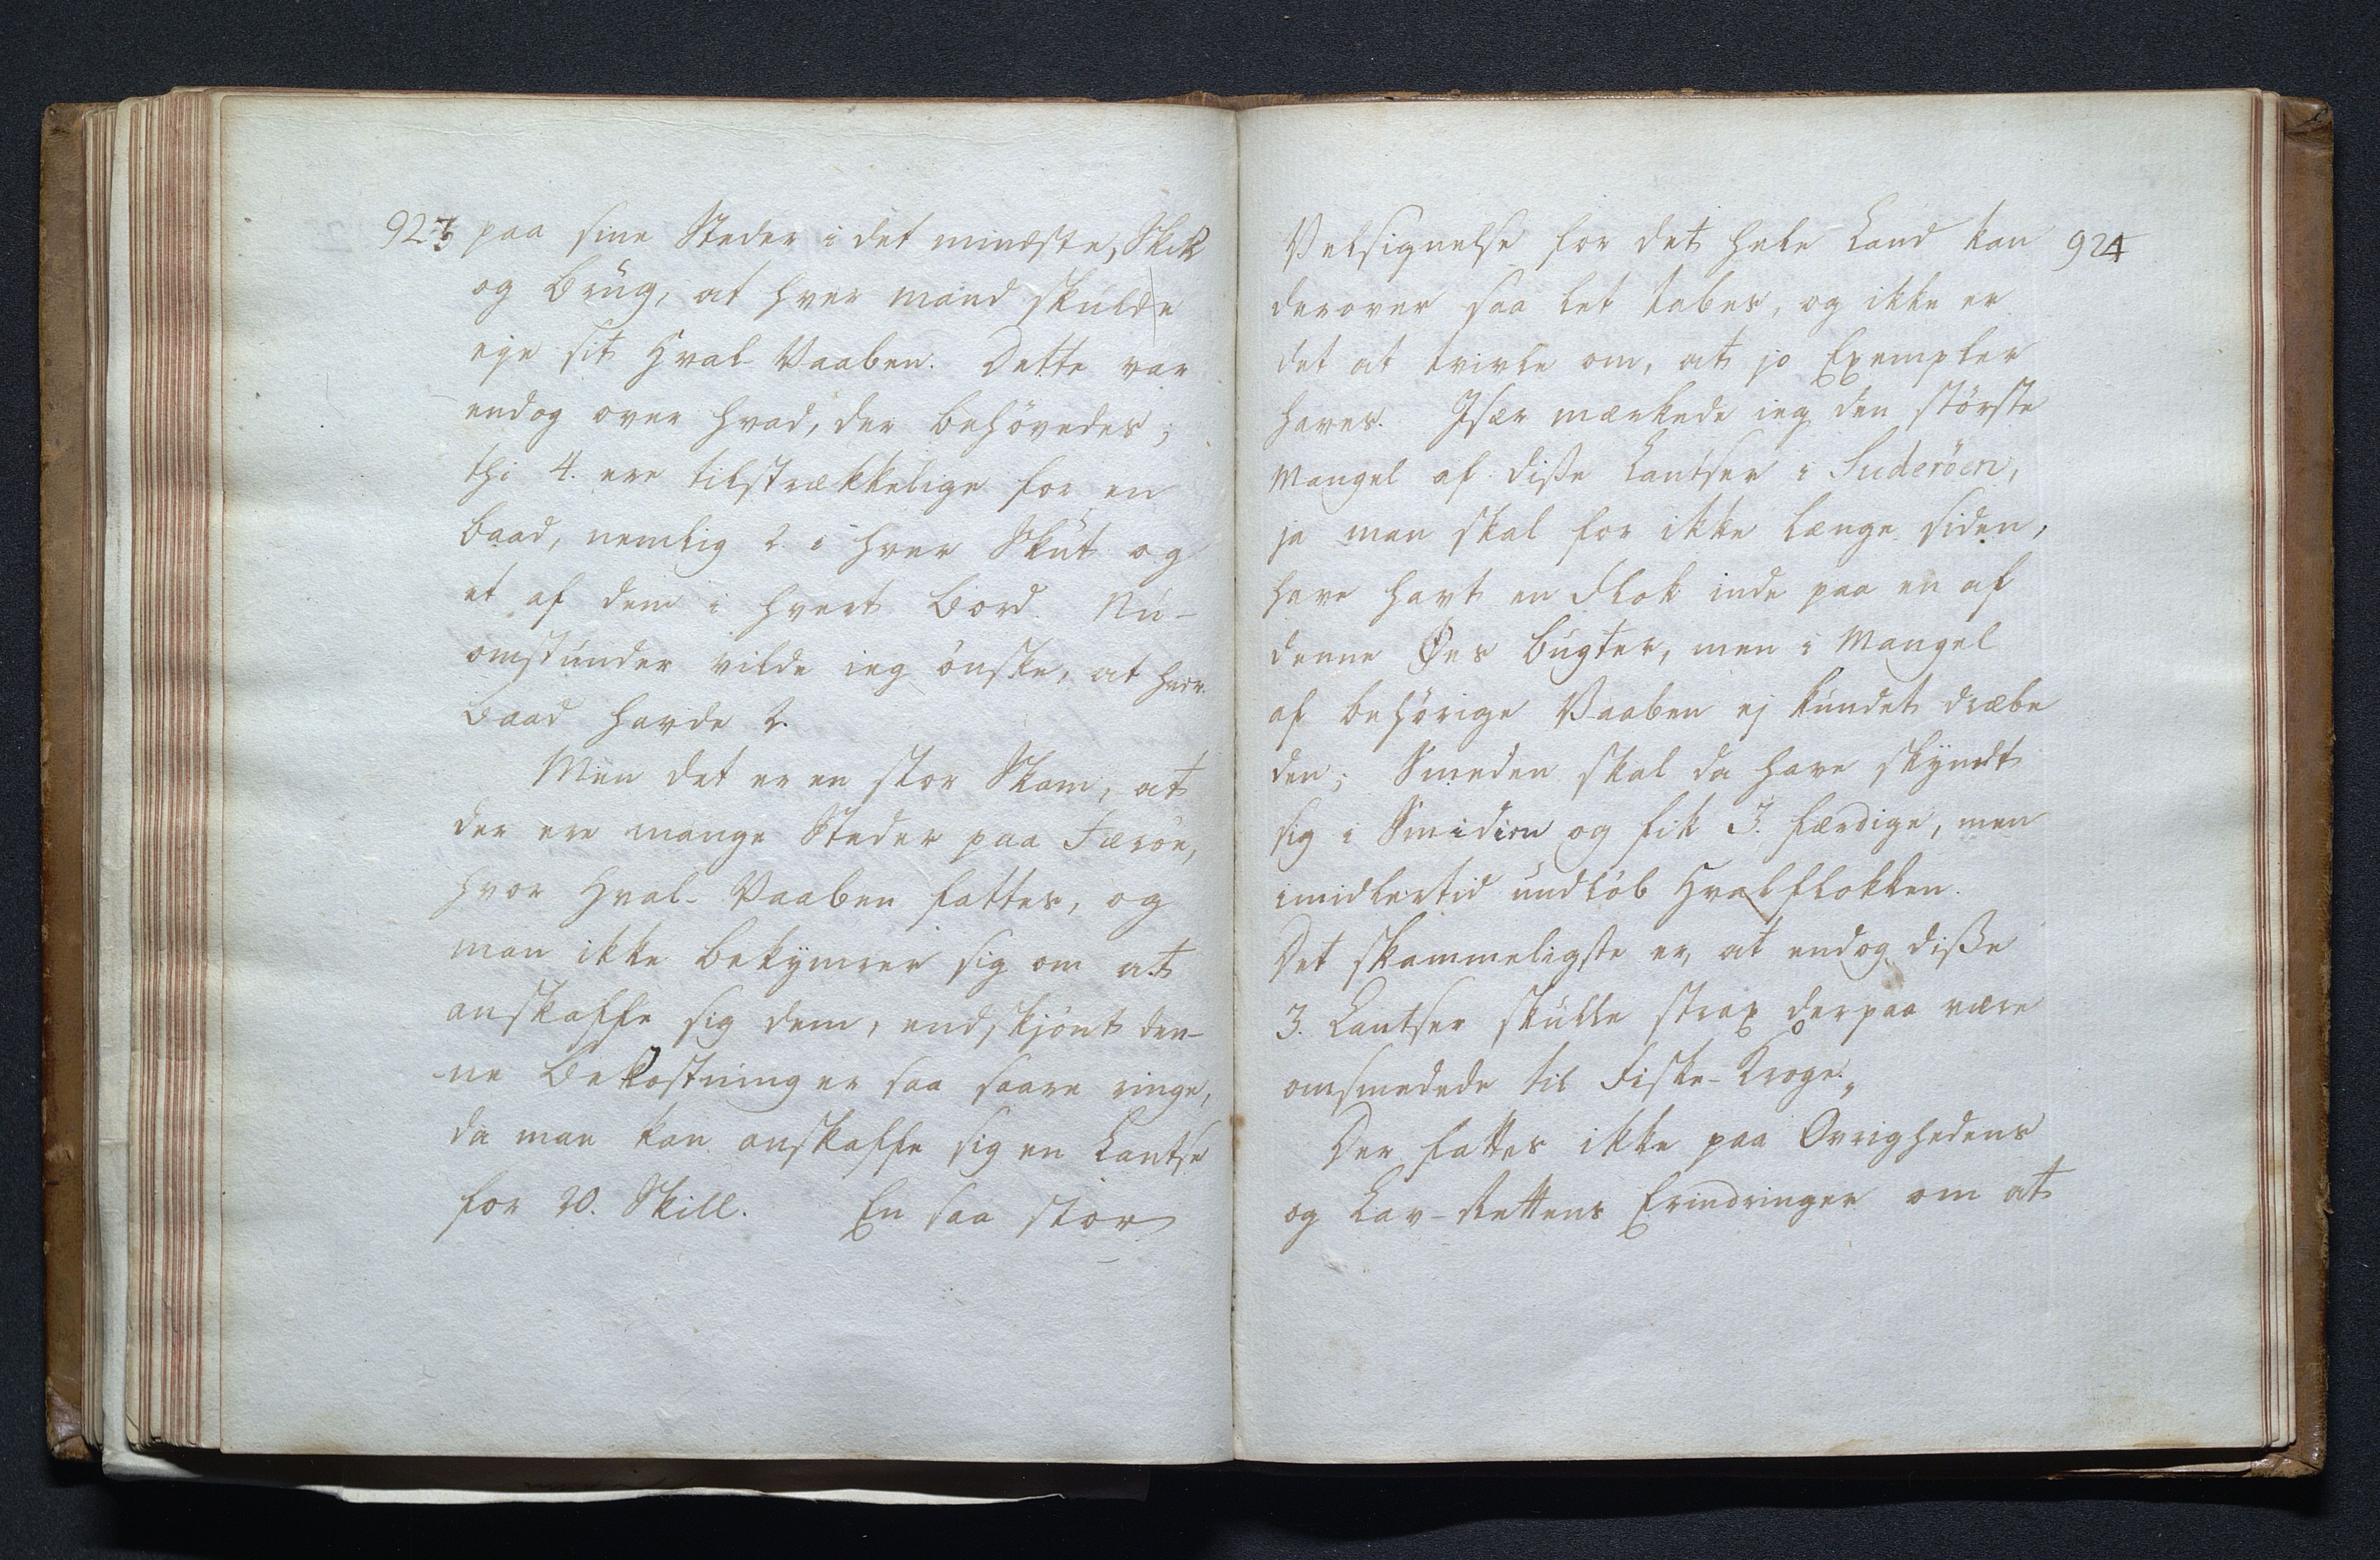 923 paa sine Steder i det mindste, Skik
og Brug, at hver mand skulde
eje sit Hval-Vaaben. Dette var
endog over hvad, der behövedes;
thi 4. ere tilstrækkelige for en
Baad, nemlig 2 i hver Skut og
et af dem i hvert Bord. Nu-
omstunder vilde ieg önske, at hver
Baad havde 2.
Men det er en stor Skam, at
der ere mange Steder paa Færöe,
hvor Hval-Vaaben fattes, og
man ikke bekymrer sig om at
anskaffe sig dem, endskjönt den-
ne Bekostning er saa saare ringe,
da man kan anskaffe sig en Lantse
for 20. Skill. En saa stor
Velsignelse for det hele Land kan 924
derover saa let tabes, og ikke er
det at tvivle om, at jo Exempler
haves. Især mærkede ieg den störste
Mangel af disse Lantser i Suderöen,
ja man skal for ikke længe siden,
have havt en Flok inde paa en af
denne Øes Bugter, men i Mangel
af behörige Vaaben ej kundet dræbe
den; Smeden skal da have skyndt
sig i Smidien og fik 3. færdige, men
imidlertid undlöb Hvalflokken.
Det skammeligste er, at endog disse
3. Lantser skulle strax derpaa være
omsmedede til Fiske-Kroge.
Der fattes ikke paa Övrighedens
og Lav-Rettens Erindringer om at